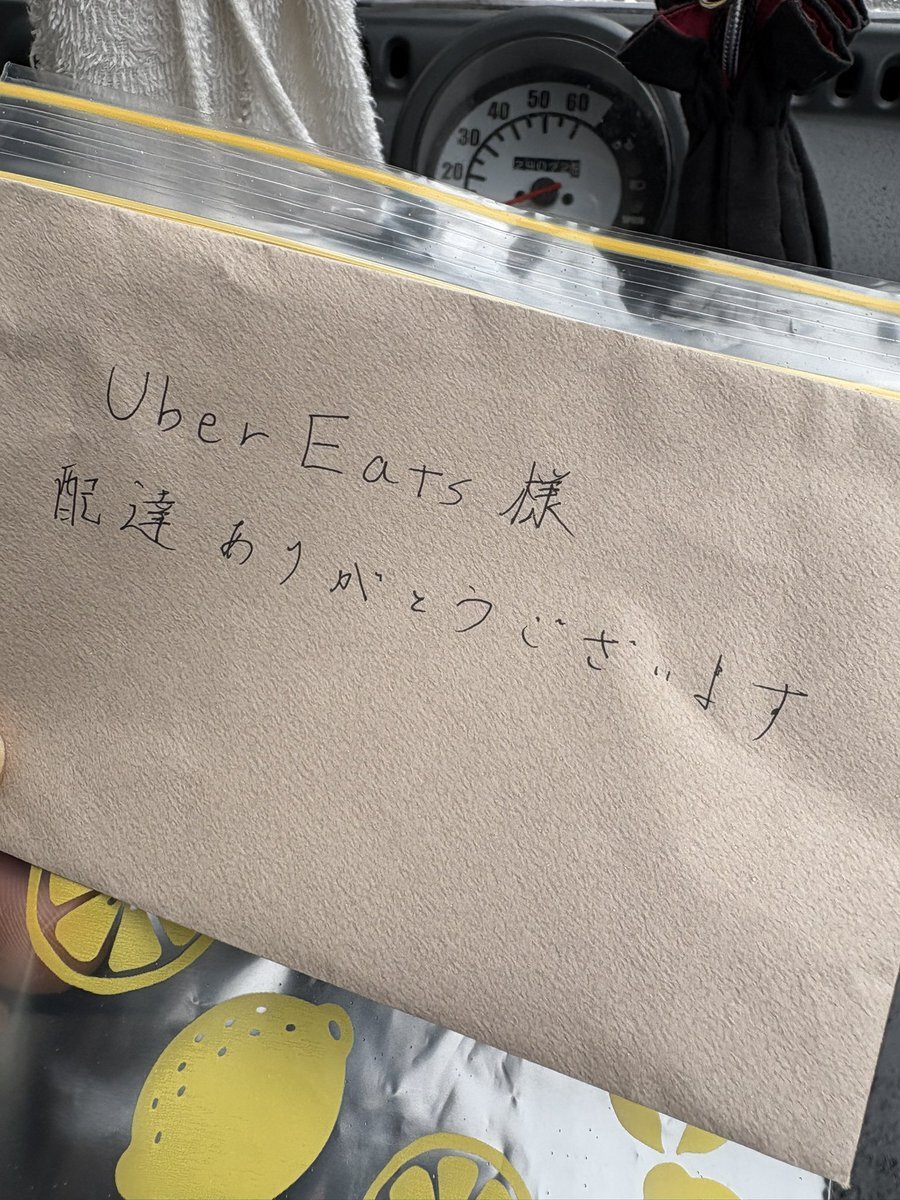 20 30 40 50 60
Uber Eats 様
配達ありがとうございます